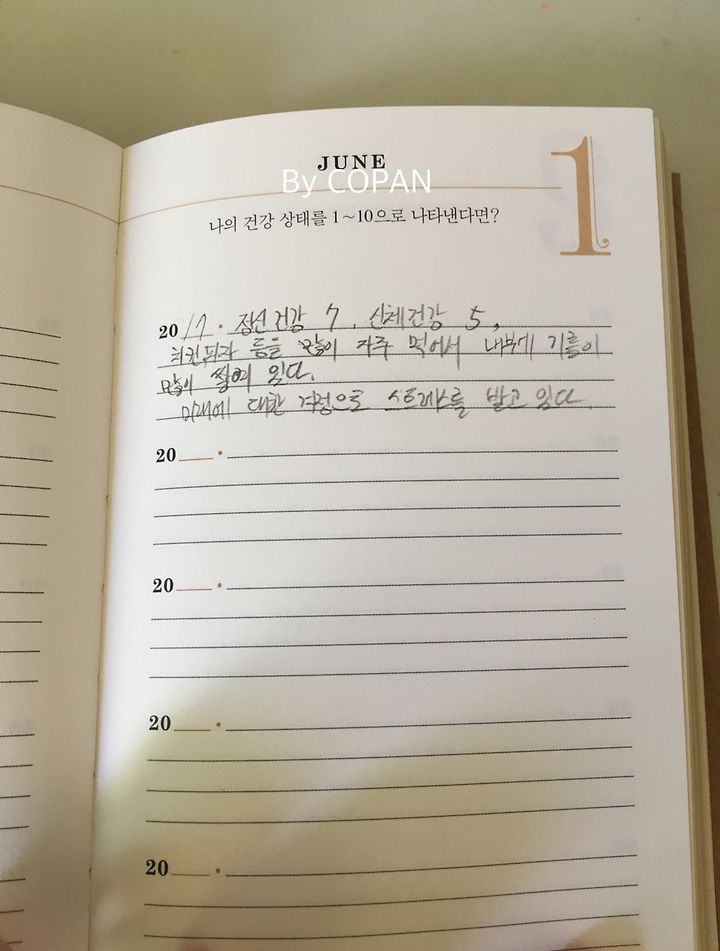 JUNE
1
By COPAN
나의 건강 상태를 1~10으로 나타낸다면?
2017 · 정신건강 7, 신체건강 5,
치킨피자 등을 많이 자주 먹어서 내부에 기름이
많이 쌓여 있다.
미래에 대한 걱정으로 스트레스를 받고 있다.
20__ ·
20__ ·
20__ ·
20__ ·